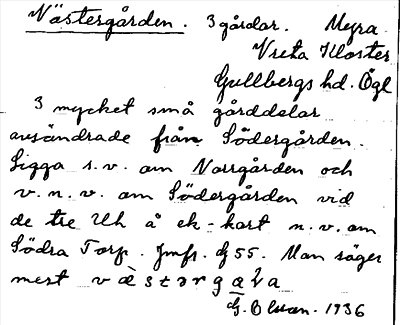 Västergården. 3 gårdar. Myra.
Vreta Kloster
Gullbergs hd. Ögl
3 mycket små gårddelar
avsöndrade från Södergården.
Ligga s.v. om Norrgården och
v.n.v. om Södergården vid
de tre Uh å ek-kart n.v. om
Södra Torp. Jmfr. 55. Man säger
mest vɛ̀stərgaɽa
G. Olsson. 1936